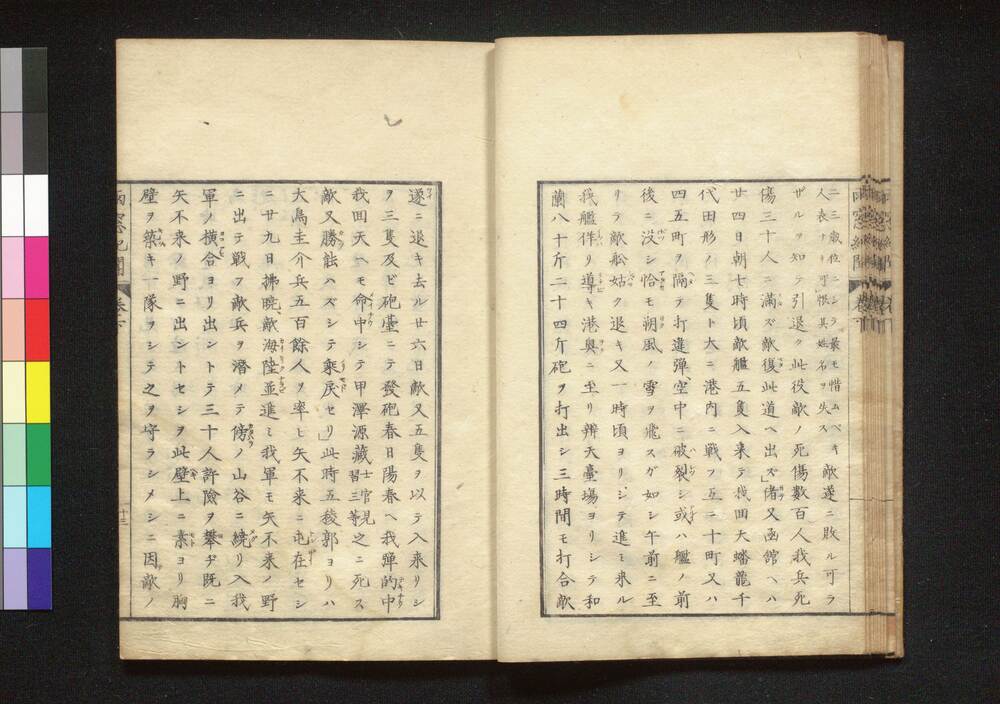 二三敵位ニシラ最モ惜ムベキ敵遂ニ敗ル可ラ
人表ナリ可恨其姓名ヲ失ス
ザルヲ知テ引退ク此役敵ノ死傷數百人我兵死
傷三十人ニ滿ズ敵復此道ヘ出ズ」偖又函館ヘハ
廿四日朝七時頃敵艦五隻入来テ我回天蟠龍千
代田形ノ三隻ト大ニ港内ニ戰フ互ニ十町又ハ
四五町ヲ隔ラ打違彈空中ニ破裂シ或ハ艦ノ前
後ニ没シ恰モ朔風ノ雪ヲ飛スガ如シ午前ニ至
リラ敵船姑ク退キ又一時頃ヨリシテ進ミ来ル
我艦佯リ導キ港奥ニ至リ辨天臺場ヨリシテ和
蘭八十斤二十四斤砲ヲ打出シ三時間モ打合敵
遂ニ退キ去ル廿六日敵又五隻ヲ以テ入来リシ
ヲ三隻及ビ砲臺ニテ發砲春日陽春ヘ我彈的中
我回天ヘモ命中シテ甲澤源藏士官見習三等之ニ死ス
敵又勝能ハズシテ乘戻セリ」此時五稜郭ヨリハ
大鳥圭介兵五百餘人ヲ率ヒ矢不来ニ屯在セシ
ニ廿九日拂曉敵海陸並進ミ我軍モ矢不来ノ野
ニ出テ戰フ敵兵ヲ潛メテ傍ノ山谷ニ繞リ入我
軍ノ横合ヨリ出ントテ三十人許險ヲ攀ヂ既ニ
矢不来ノ野ニ出ントセシヲ此壁上ニ素ヨリ胸
壁ヲ築キ一隊ヲシテ之ヲ守ラシメシニ因敵ノ
雨窓紀聞 卷下 十三